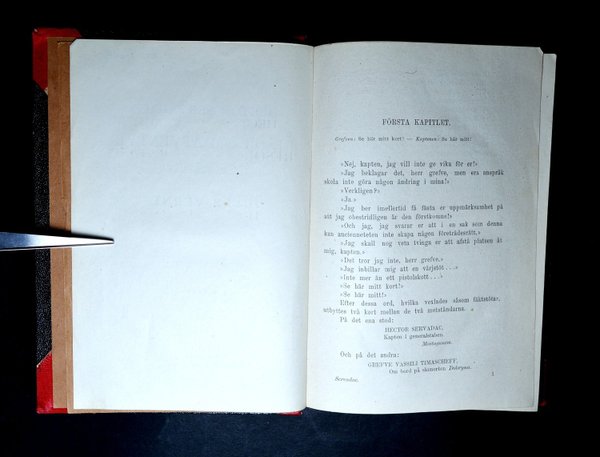 FÖRSTA KAPITLET.
Grefven: Se här mitt kort! — Kaptenen: Se här mitt!
»Nej, kapten, jag vill inte ge vika för er!»
»Jag beklagar det, herr grefve, men era anspråk
skola inte göra någon ändring i mina!»
»Verkligen?»
»Ja.»
»Jag ber imellertid få fästa er uppmärksamhet på
att jag obestridligen är den förstkomne!»
»Och jag, jag svarar er att i en sak som denna
kan ancienneteten inte skapa någon företrädesrätt.»
»Jag skall nog veta tvinga er att afstå platsen åt
mig, kapten.»
»Det tror jag inte, herr grefve.»
»Jag inbillar mig att en värjstöt...»
»Inte mer än ett pistolskott...»
»Se här mitt kort!»
»Se här mitt!»
Efter dessa ord, hvilka vexlades såsom fäktstötar,
utbyttes två kort mellan de två motståndarne.
På det ena stod:
HECTOR SERVADAC,
Kapten i generalstaben.
Mostaganem.
Och på det andra:
GREFVE VASSILI TIMASCHEFF,
Om bord på skonerten Dobryna.
Servadac.
1